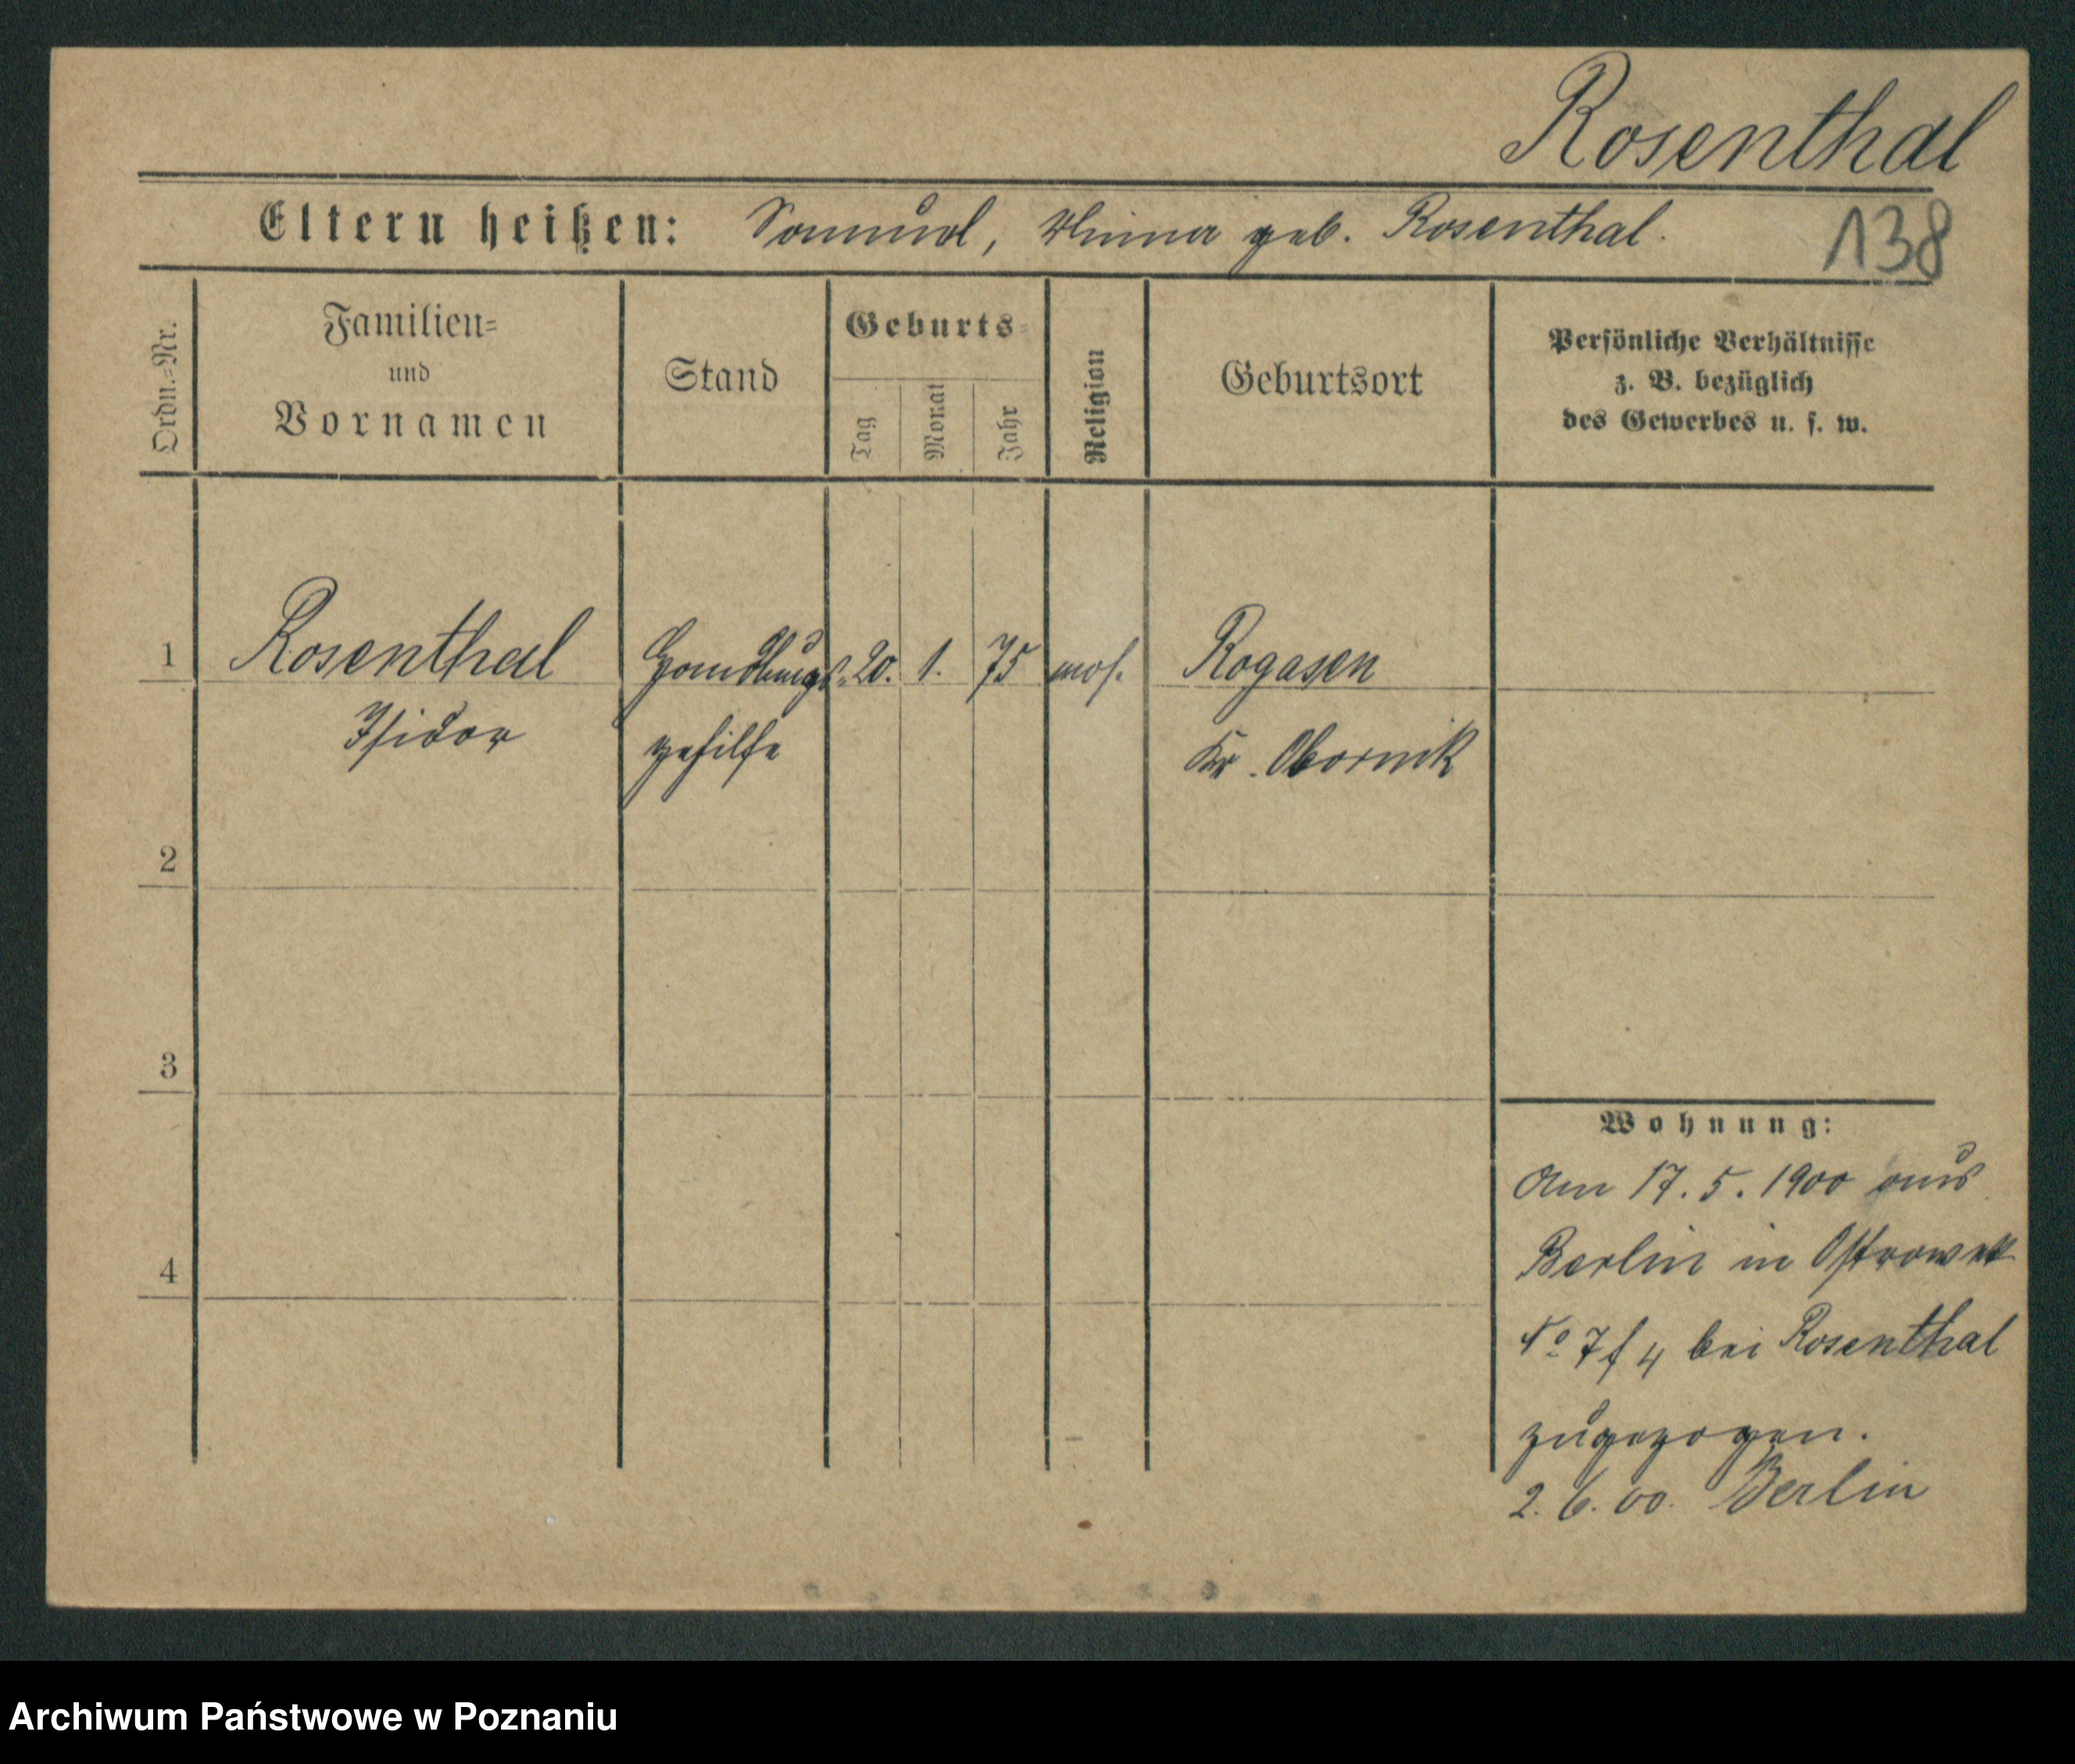 Rosenthal
Eltern heißen: Samuel, Minna geb. Rosenthal.
138
Ordn.=Nr.
Familien=
und
Vornamen
Stand
Geburts=
Tag
Monat
Jahr
Religion
Geburtsort
Persönliche Verhältnisse
z. B. bezüglich
des Gewerbes u. s. w.
1 Rosenthal Handlungs- 20. 1. 75 mos. Rogasen
Isidor gehilfe Kr. Obornik
2
3
4
Wohnung:
Am 17. 5. 1900 aus
Berlin in Ostrowek
No 7 f 4 bei Rosenthal
zugezogen.
2. 6. 00. Berlin
Archiwum Państwowe w Poznaniu